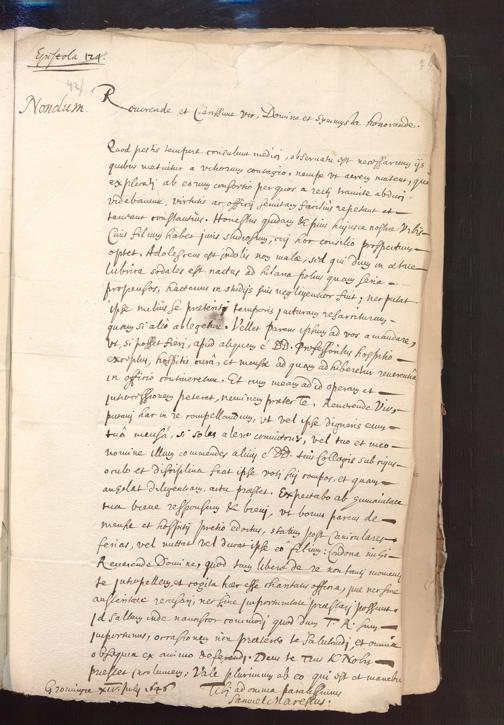 Epistola 124.
42
Nondum.
Reverende et Clarissime vir, Domine et Symmysta honorande.
Quod pestis tempore consulunt medici, observatu est necessarium ijs
quibus metuitur a vitiorum contagio, nempe ut aerem mutent, que
explorati ab eorum consortio per quos a recti tramite abduci
videbantur, virtutis ac officij semitam facilius repetant et
teneant constantius. Honestus quidam & pius hujusce nostræ Urbis
Civis filium habet juris studiosum, cui hoc consilio prospectum
optet. Adolescens est indolis non malæ, sed qui dum in ætate
lubrica sodales est nactus ad hilaria potius quam seria
propensos, hactenus in studijs suis negligentior fuit; nec putat
ipse melius se præteriti temporis jacturam resarciturum,
quam si alio ablegetur. Vellet parens ipsum ad vos amandare,
ut, si posset fieri, apud aliquem è DD. Professoribus hospitio
exceptus, hospitis curâ, et mensæ ad quam adhiberetur reverentia
in officio contineretur. Et cum meam ad id operam et
intercessionem peteret, neminem præter Te, Reverende Vir,
putavi hac in re compellandum, ut vel ipse digneris eum
tuâ mensâ, si soles alere convictores, vel tuo et meo
nomine illum commendes alicui è DD. tuis Collegis sub cujus
oculo et disciplina fiat ipse voti sui compos, et quam
diligentiam, actu præstet. Expectabo ab humanitate
tua breve responsum & breve, ut bonus parens de
mensæ et hospitij pretio edoctus, statim post Caniculares
ferias, vel mittat vel ducat ipse eo filium. Condona mihi
Reverende Domine, quod tam libere de re non tanti momenti
te interpellem, et cogita hæc esse charitatis officia, quæ nec sine
recusari, nec sine importunitate præstari possunt.
Id saltem inde nanciscor commodi, quod dum T. R. sum
importunus, occasionem non prætereo te salutandi et omnia
obsequia ex animo deferendi. Deus te Tuis & Nobis
præstet incolumem; Vale plurimum ab eo qui est et manebit
Groningæ XIV. Julij 1646
Tibi ad omnia paratissimus
Samuel Maresius.